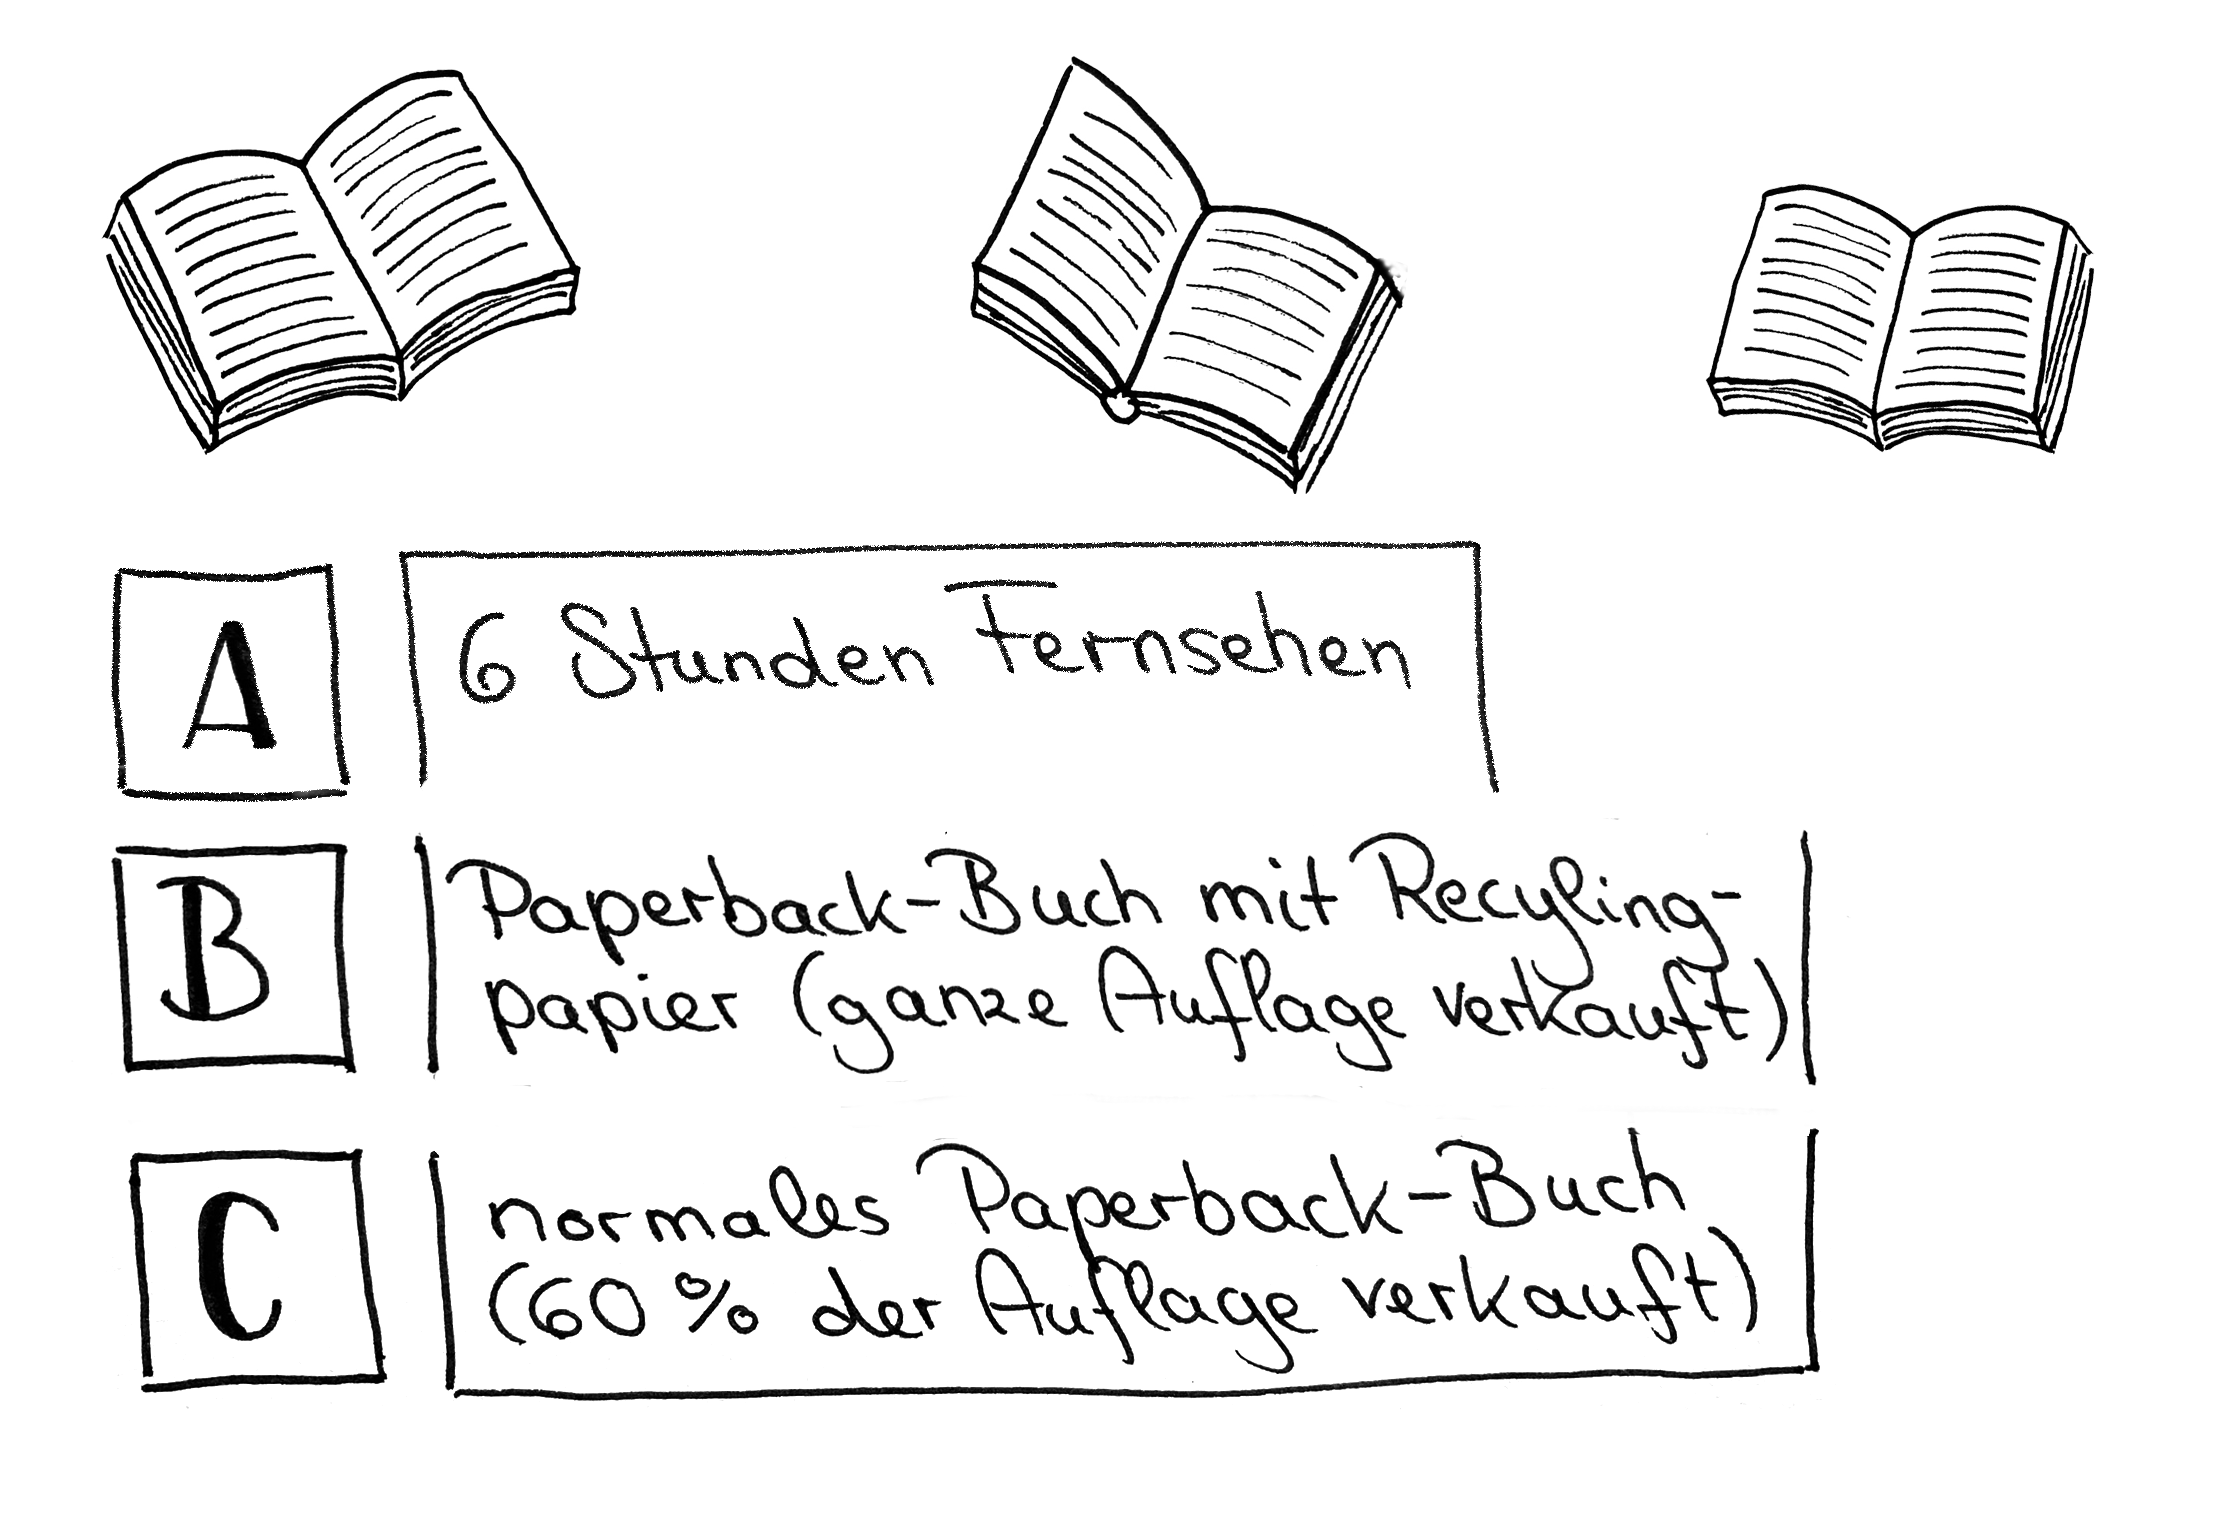 A
6 Stunden Fernsehen
B
Paperback-Buch mit Recyling-
papier (ganze Auflage verkauft)
C
normales Paperback-Buch
(60% der Auflage verkauft)